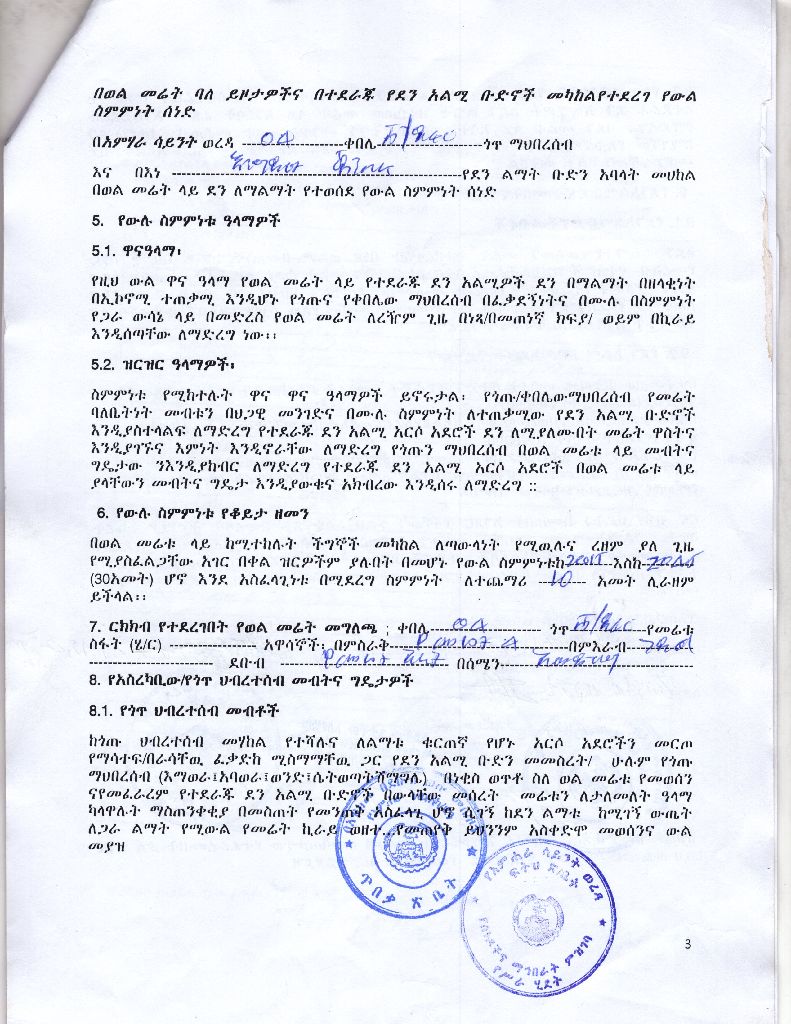 በወል መሬት ባለ ይዞታዎችና በተደራጁ የደን አልሚ ቡድኖች መካከልየተደረገ የውል
ስምምነት ሰነድ
በአምሃራ ሳይንት ወረዳ ---------ቀበሌ ---------ጎጥ ማህበረሰብ
እና በእነ ---------የደን ልማት ቡድን አባላት መሀከል
በወል መሬት ላይ ደን ለማልማት የተወሰደ የውል ስምምነት ሰነድ
5. የውሉ ስምምነቱ ዓላማዎች
5.1. ዋናዓላማ፡
የዚህ ውል ዋና ዓላማ የወል መሬት ላይ የተደራጁ ደን አልሚዎች ደን በማልማት በዘላቂነት
በኢኮኖሚ ተጠቃሚ እንዲሆኑ የጎጡና የቀበሌው ማህበረሰብ በፈቃደኝነትና በሙሉ በስምምነት
የጋራ ውሳኔ ላይ በመድረስ የወል መሬት ለረዥም ጊዜ በነጻ/በመጠነኛ ክፍያ/ ወይም በኪራይ
እንዲሰጣቸው ለማድረግ ነው፡፡
5.2. ዝርዝር ዓላማዎች፡
ስምምነቱ የሚከተሉት ዋና ዋና ዓላማዎች ይኖሩታል፡ የጎጡ/ቀበሌውማህበረሰብ የመሬት
ባለቤትነት መብቱን በህጋዊ መንገድና በሙሉ ስምምነት ለተጠቃሚው የደን አልሚ ቡድኖች
እንዲያስተላልፍ ለማድረግ የተደራጁ ደን አልሚ አርሶ አደሮች ደን ለሚያለሙበት መሬት ዋስትና
እንዲያገኙና እምነት እንዲኖራቸው ለማድረግ የጎጡን ማህበረሰብ በወል መሬቱ ላይ መብትና
ግዴታው ንእንዲያከብር ለማድረግ የተደራጁ ደን አልሚ አርሶ አደሮች በወል መሬቱ ላይ
ያላቸውን መብትና ግዴታ እንዲያውቁና አክብረው እንዲሰሩ ለማድረግ ::
6. የውሉ ስምምነቱ የቆይታ ዘመን
በወል መሬቱ ላይ ከሚተከሉት ችግኞች መካከል ለጣውላነት የሚዉሉና ረዘም ያለ ጊዜ
የሚያስፈልጋቸው አገር በቀል ዝርዎችም ያሉበት በመሆኑ የውል ስምምነቱከ 2015 እስከ 2045
(30አመት) ሆኖ እንደ አስፈላጊነቱ በሚደረግ ስምምነት ለተጨማሪ --10-- አመት ሊራዘም
ይችላል፡፡
7. ርክክብ የተደረገበት የወል መሬት መግለጫ ; ቀበሌ --------- ጎጥ ---------የመሬቱ
ስፋት (ሄ/ር) ---------------- አዋሳኞች፡ በምስራቅ---------በምእራብ---------
---------------------- ደቡብ --------- በሰሜን---------
8. የአስረካቢው/የጎጥ ህብረተሰብ መብትና ግዴታዎች
8.1. የጎጥ ህብረተሰብ መብቶች
ከጎጡ ህብረተሰብ መሃከል የተሻሉና ለልማቱ ቁርጠኛ የሆኑ አርሶ አደሮችን መርጦ
የማሳተፍ/በራሳቸዉ ፈቃድከ ሚስማማቸዉ ጋር የደን አልሚ ቡድን መመስረት/ ሁሉም የጎጡ
ማህበረሰብ (እማወራ፤አባወራ፤ወንድ፤ሴትወጣትችማማሌ) በነቂስ ወጥቶ ስለ ወል መሬቱ የመወሰን
ናየመፈራረም የተደራጁ ደን አልሚ ቡድኖች በውላቸው መሰረት መሬቱን ለታለመለት ዓላማ
ካላዋሉት ማስጠንቀቂያ በመስጠት የመንጠቅ አስፈላጊ ሆኖ ሲገኝ ከደን ልማቱ ከሚገኝ ውጤት
ለጋራ ልማት የሚውል የመሬት ኪራይ ወዘተ...የመጠየቅ ይህንንም አስቀድሞ መወሰንና ውል
መያዝ
ጥበቃ ጽ ቤት
የአምሐራ ሳይንት ወረዳ
ፍትህ ጽ/ቤት
የሰነዶችና ማኅበራት ምዝገባ
የሥራ ሂደት
3